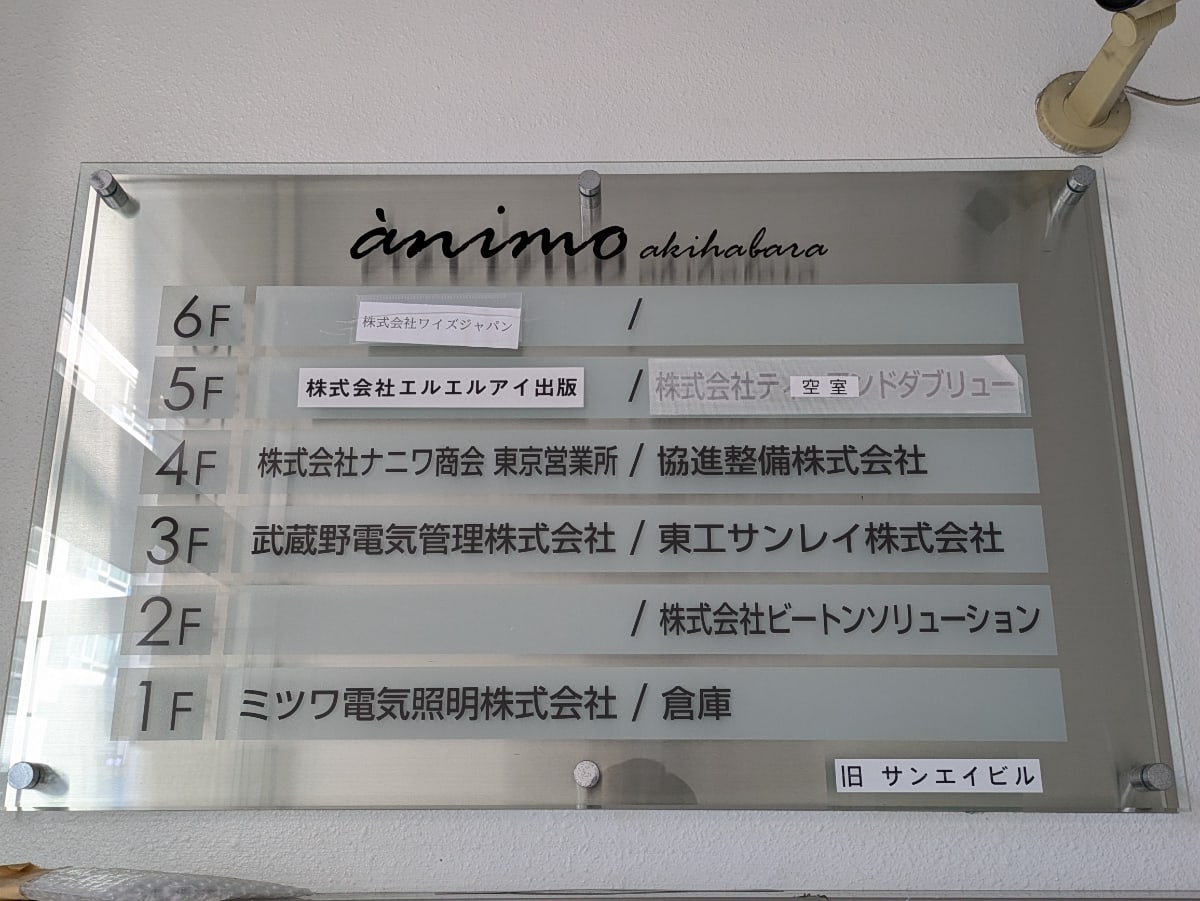 ànimo akihabara
6F 株式会社ワイズジャパン /
5F 株式会社エルエルアイ出版 / 株式会社テ 空室 ンドダブリュー
4F 株式会社ナニワ商会 東京営業所 / 協進整備株式会社
3F 武蔵野電気管理株式会社 / 東工サンレイ株式会社
2F / 株式会社ビートンソリューション
1F ミツワ電気照明株式会社 / 倉庫
旧 サンエイビル